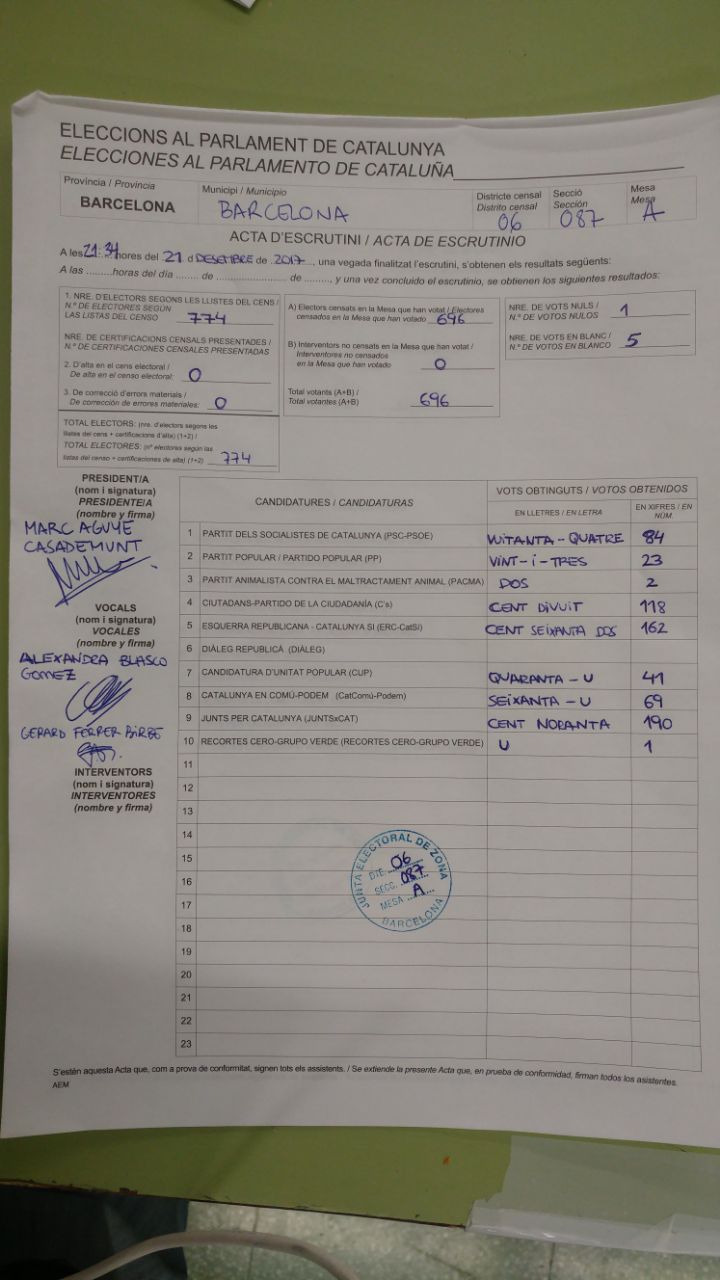 ELECCIONS AL PARLAMENT DE CATALUNYA
ELECCIONES AL PARLAMENTO DE CATALUÑA
Provincia / Provincia
BARCELONA
Municipi / Municipio
BARCELONA
Districte censal
Distrito censal
06
Secció
Sección
087
Mesa
Mesa
A
ACTA D'ESCRUTINI / ACTA DE ESCRUTINIO
A les 21:34 hores del 21 d DESEMBRE de 2017, una vegada finalitzat l'escrutini, s'obtenen els resultats següents:
A las .........horas del día ....... de ............................ de ........., y una vez concluido el escrutinio, se obtienen los siguientes resultados:
1. NRE. D'ELECTORS SEGONS LES LLISTES DEL CENS /
N.º DE ELECTORES SEGÚN
LAS LISTAS DEL CENSO 774
NRE. DE CERTIFICACIONS CENSALS PRESENTADES /
N.º DE CERTIFICACIONES CENSALES PRESENTADAS
2. D'alta en el cens electoral /
De alta en el censo electoral: 0
3. De correcció d'errors materials /
De corrección de errores materiales: 0
TOTAL ELECTORS: (nre. d'electors segons les
llistes del cens + certificacions d'alta) (1+2) /
TOTAL ELECTORES: (nº electores según las
listas del censo + certificaciones de alta) (1+2) 774
A) Electors censats en la Mesa que han votat / Electores
censados en la Mesa que han votado 696
B) Interventors no censats en la Mesa que han votat /
Interventores no censados
en la Mesa que han votado 0
Total votants (A+B) /
Total votantes (A+B) 696
NRE. DE VOTS NULS /
N.º DE VOTOS NULOS 1
NRE. DE VOTS EN BLANC /
N.º DE VOTOS EN BLANCO 5
PRESIDENT/A
(nom i signatura)
PRESIDENTE/A
(nombre y firma)
MARC AGUYE
CASADEMUNT
VOCALS
(nom i signatura)
VOCALES
(nombre y firma)
ALEXANDRA BLASCO
GOMEZ
GERARD FERRER BIRBE
INTERVENTORS
(nom i signatura)
INTERVENTORES
(nombre y firma)
CANDIDATURES / CANDIDATURAS
VOTS OBTINGUTS / VOTOS OBTENIDOS
EN LLETRES / EN LETRA
EN XIFRES / EN
NÚM.
1 PARTIT DELS SOCIALISTES DE CATALUNYA (PSC-PSOE) VUITANTA-QUATRE 84
2 PARTIT POPULAR / PARTIDO POPULAR (PP) VINT-I-TRES 23
3 PARTIT ANIMALISTA CONTRA EL MALTRACTAMENT ANIMAL (PACMA) DOS 2
4 CIUTADANS-PARTIDO DE LA CIUDADANÍA (C's) CENT DIVUIT 118
5 ESQUERRA REPUBLICANA - CATALUNYA SI (ERC-CatSí) CENT SEIXANTA DOS 162
6 DIÀLEG REPUBLICÀ (DIÀLEG)
7 CANDIDATURA D'UNITAT POPULAR (CUP) QUARANTA-U 41
8 CATALUNYA EN COMÚ-PODEM (CatComú-Podem) SEIXANTA-U 69
9 JUNTS PER CATALUNYA (JUNTSxCAT) CENT NORANTA 190
10 RECORTES CERO-GRUPO VERDE (RECORTES CERO-GRUPO VERDE) U 1
11
12
13
14
15
16
17
18
19
20
21
22
23
JUNTA ELECTORAL DE ZONA
DTE. 06
SECC. 087
MESA A
BARCELONA
S'estén aquesta Acta que, com a prova de conformitat, signen tots els assistents. / Se extiende la presente Acta que, en prueba de conformidad, firman todos los asistentes.
AEM